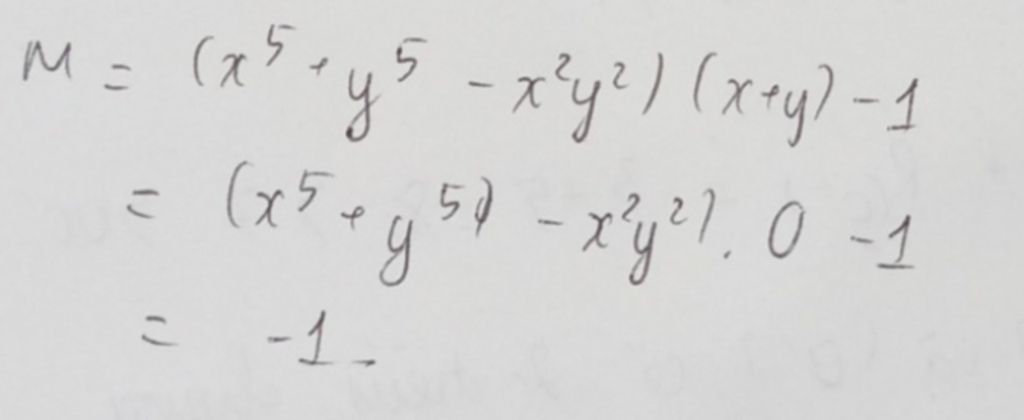 M = (x⁵ + y⁵ - x²y²) (x+y) - 1
= (x⁵ + y⁵) - x²y²) . 0 - 1
= -1.